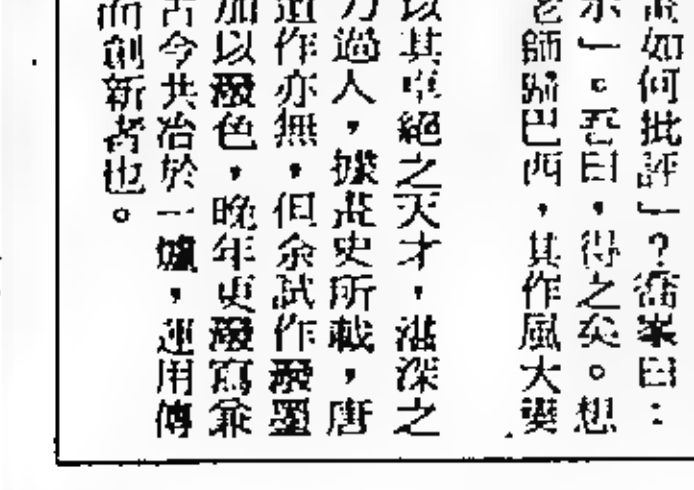 如何批評」？喬家曰：
」。吾曰，得之矣。想
老師歸巴西，其作風大變
以其卓絕之天才，湛深之
力過人，據畫史所載，唐
道作亦無，但余試作潑墨
加以潑色，晚年更潑寫兼
古今共冶於一爐，運用傳
而創新者也。